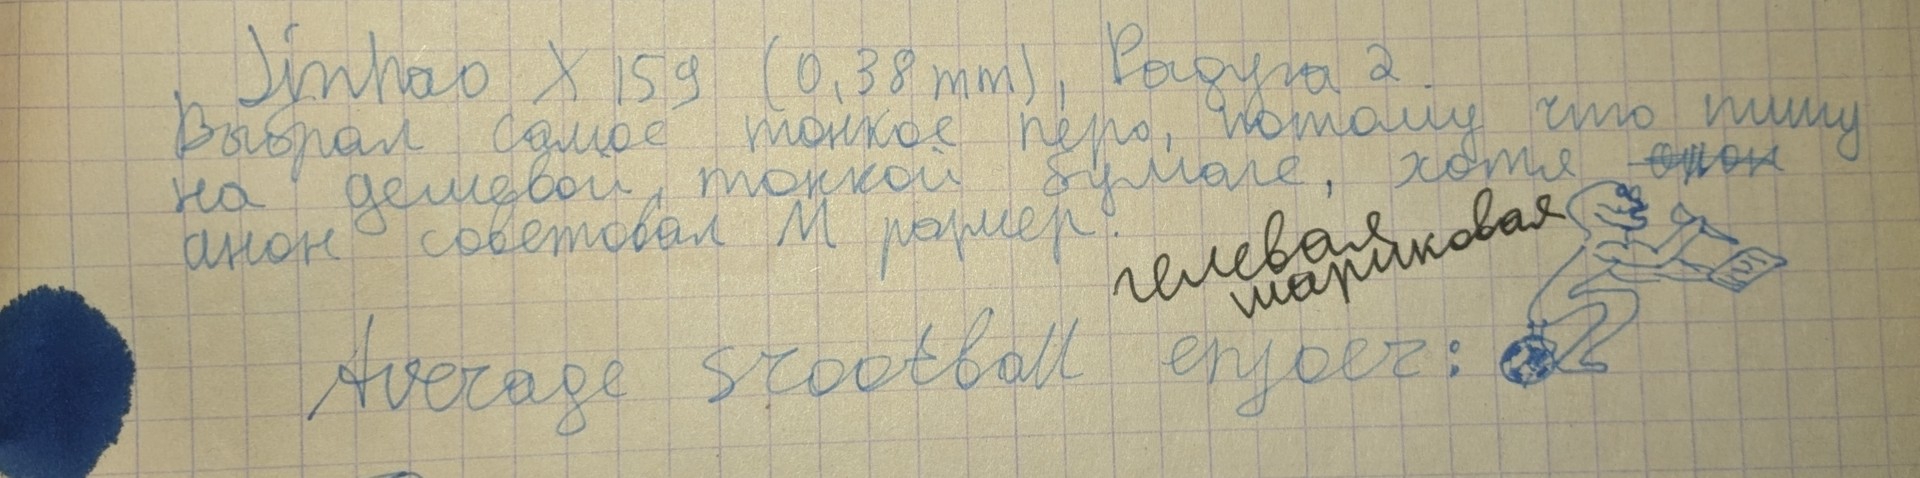 Jinhao X 159 (0,38 mm), Радуга 2.
Выбрал самое тонкое перо, потому что пишу
на дешевой, тонкой бумаге, хотя анон
анон советовал M размер.
гелевая
шариковая
Average srootball enjoer: